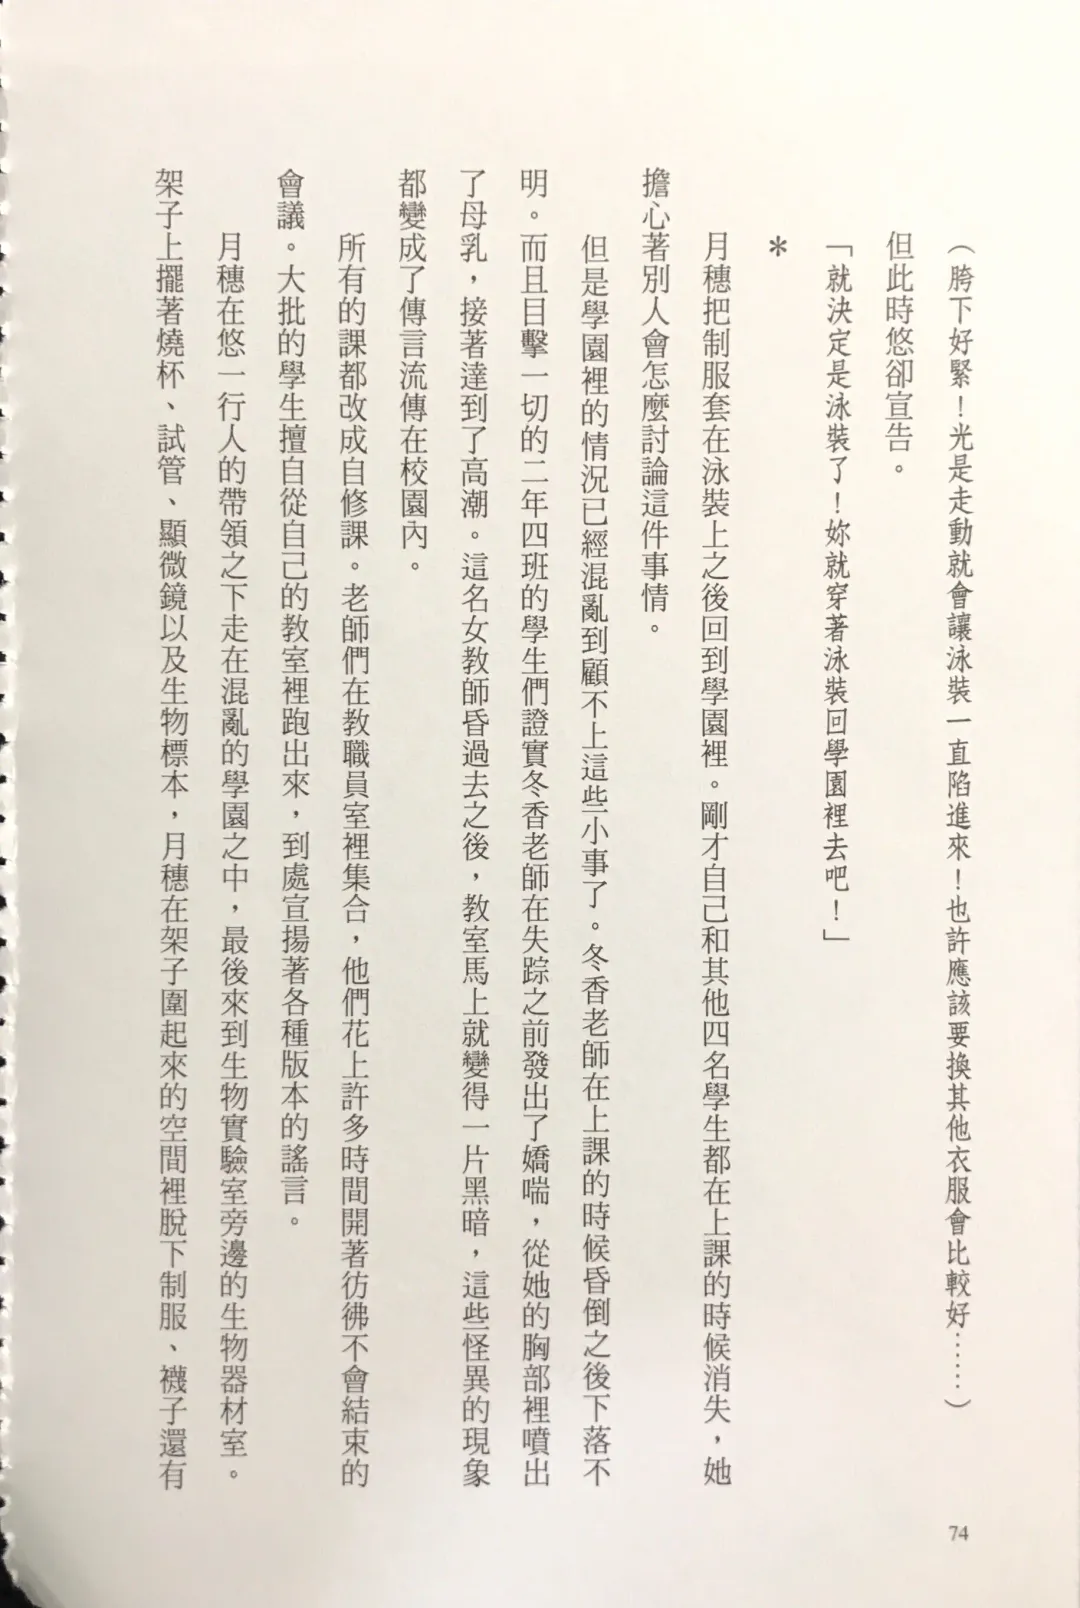 （胯下好緊！光是走動就會讓泳裝一直陷進來！也許應該要換其他衣服會比較好……）
但此時悠卻宣告。
「就決定是泳裝了！妳就穿著泳裝回學園裡去吧！」
＊
月穗把制服套在泳裝上之後回到學園裡。剛才自己和其他四名學生都在上課的時候消失，她
擔心著別人會怎麼討論這件事情。
但是學園裡的情況已經混亂到顧不上這些小事了。冬香老師在上課的時候昏倒之後下落不
明。而且目擊一切的二年四班的學生們證實冬香老師在失踪之前發出了嬌喘，從她的胸部裡噴出
了母乳，接著達到了高潮。這名女教師昏過去之後，教室馬上就變得一片黑暗，這些怪異的現象
都變成了傳言流傳在校園內。
所有的課都改成自修課。老師們在教職員室裡集合，他們花上許多時間開著彷彿不會結束的
會議。大批的學生擅自從自己的教室裡跑出來，到處宣揚著各種版本的謠言。
月穗在悠一行人的帶領之下走在混亂的學園之中，最後來到生物實驗室旁邊的生物器材室。
架子上擺著燒杯、試管、顯微鏡以及生物標本，月穗在架子圍起來的空間裡脫下制服、襪子還有
74